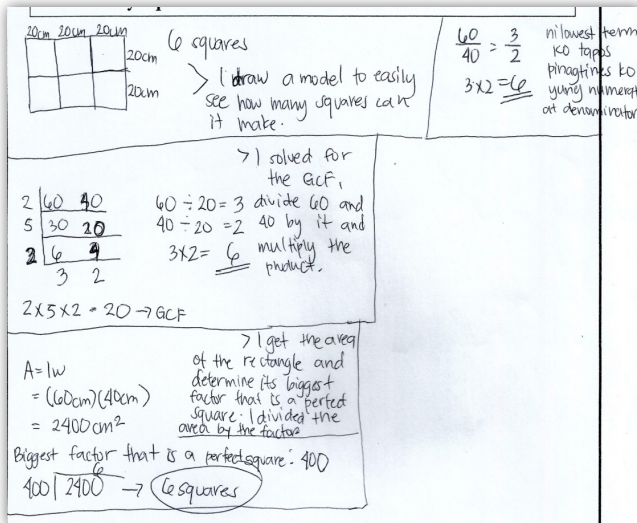 20cm 20cm 20cm
20cm
20cm
6 squares
> I draw a model to easily
see how many squares can
it make.
60/40 = 3/2
3x2 = 6
nilowest term
ko tapos
pinagtines ko
yung numerat
at denominator
> I solved for
the GCF,
divide 60 and
40 by it and
multiply the
product.
2 | 60 40
5 | 30 20
2 | 6 4
3 2
60 ÷ 20 = 3
40 ÷ 20 = 2
3x2 = 6
2x5x2 = 20 → GCF
> I get the area
of the rectangle and
determine its biggest
factor that is a perfect
square. I divided the
area by the factor
A = lw
= (60cm)(40cm)
= 2400cm²
Biggest factor that is a perfect square: 400
6
400 | 2400 → 6 squares